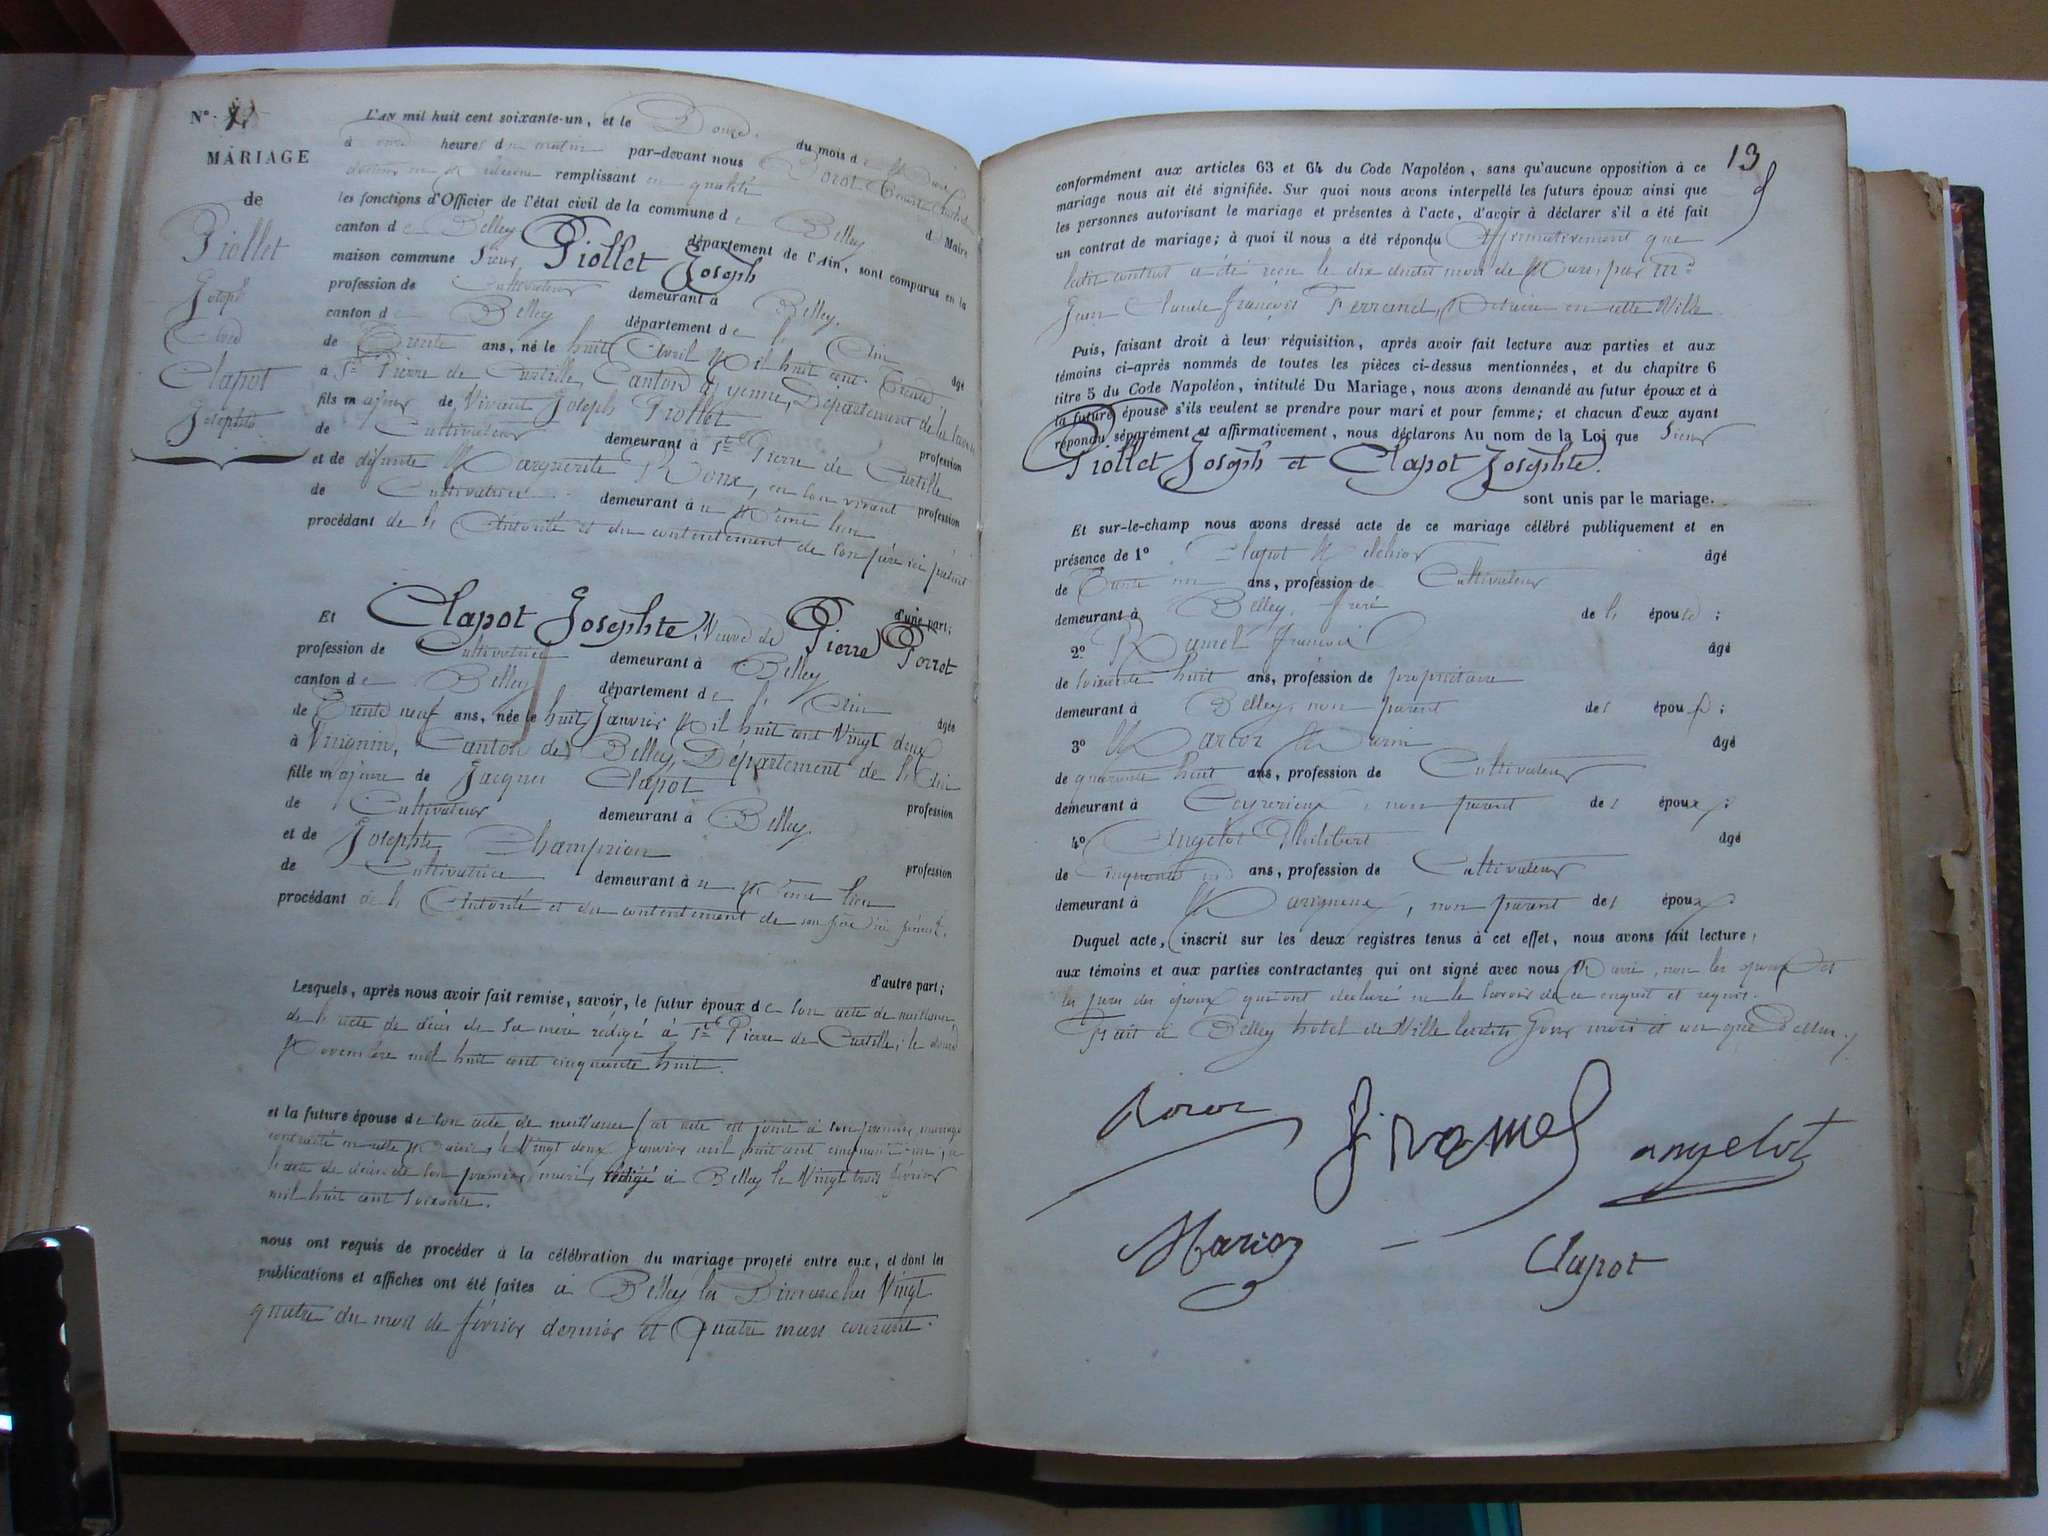 N°.
MARIAGE
de
Piollet
Joseph
Clapot
Josephte
L'AN mil huit cent soixante-un, et le Douze du mois de Mars
à heures du matin par-devant nous
docteur en Médecine remplissant en qualité d Maire
les fonctions d'Officier de l'état civil de la commune de Belley
canton de Belley département de l'Ain, sont comparus en la
maison commune Sieur Piollet Joseph
profession de Cultivateur demeurant à Belley.
canton de Belley département de l'Ain âgé
de Trente ans, né le huit Avril Mil huit cent Trente
à St Pierre de Curtille, Canton d'yenne, Département de la Savoie
fils majeur de Vivant Joseph Piollet profession
de Cultivateur demeurant à St Pierre de Curtille
et de défunte Marguerite Roux, en son vivant profession
de Cultivatrice demeurant au Même lieu
procédant de l'Autorité et du contentement de son père ici présent
d'une part;
Et Clapot Josephte, Veuve de Pierre Porrot
profession de Cultivatrice demeurant à Belley
canton de Belley département de l'Ain âgée
de Trente neuf ans, née le huit Janvier Mil huit cent Vingt deux
à Virignin, Canton de Belley, Département de l'Ain
fille majeure de Jacques Clapot profession
de Cultivateur demeurant à Belley.
et de Josephte Champion profession
de Cultivatrice demeurant au Même lieu
procédant de l'Autorité et du contentement de son père ici présent.
d'autre part;
Lesquels, après nous avoir fait remise, savoir, le futur époux de son acte de naissance,
de l'acte de décès de sa mère rédigé à St Pierre de Curtille, le douze
Novembre mil huit cent cinquante huit.
et la future épouse de son acte de naissance (cet acte est joint à son premier mariage
contracté en cette Mairie, le Vingt deux Janvier mil huit cent cinquante-un, de
l'acte de décès de son premier mari, rédigé à Belley le Vingt trois février
mil huit cent soixante.
nous ont requis de procéder à la célébration du mariage projeté entre eux, et dont les
publications et affiches ont été faites à Belley les Dimanches Vingt
quatre du mois de février dernier et Quatre mars courant.
13
conformément aux articles 63 et 64 du Code Napoléon, sans qu'aucune opposition à ce
mariage nous ait été signifiée. Sur quoi nous avons interpellé les futurs époux ainsi que
les personnes autorisant le mariage et présentes à l'acte, d'avoir à déclarer s'il a été fait
un contrat de mariage; à quoi il nous a été répondu affirmativement que
ledit contrat a été reçu le dix dudit mois de Mars par Me
Jean Claude françois Ferrand, Notaire en cette Ville.
Puis, faisant droit à leur réquisition, après avoir fait lecture aux parties et aux
témoins ci-après nommés de toutes les pièces ci-dessus mentionnées, et du chapitre 6
titre 5 du Code Napoléon, intitulé Du Mariage, nous avons demandé au futur époux et à
la future épouse s'ils veulent se prendre pour mari et pour femme; et chacun d'eux ayant
répondu séparément et affirmativement, nous déclarons Au nom de la Loi que Sieur
Piollet Joseph et Clapot Josephte.
sont unis par le mariage.
Et sur-le-champ nous avons dressé acte de ce mariage célébré publiquement et en
présence de 1° Clapot Melchior âgé
de Trente un ans, profession de Cultivateur
demeurant à Belley, frère de l'épouse;
2° Ramel françois âgé
de soixante huit ans, profession de propriétaire
demeurant à Belley, non parent des époux;
3° Marcoz Marin âgé
de quarante huit ans, profession de Cultivateur
demeurant à Ceyzerieux, non parent des époux;
4° Angelot Philibert âgé
de cinquante ans, profession de Cultivateur
demeurant à Marignieux, non parent des époux.
Duquel acte, inscrit sur les deux registres tenus à cet effet, nous avons fait lecture,
aux témoins et aux parties contractantes qui ont signé avec nous Maire, non les époux et
les pères des époux qui ont déclaré ne le savoir de ce enquis et requis.
Fait à Belley hôtel de Ville lesdits Jour mois et an que Dessus.
f. ramel
angelot
Clapot